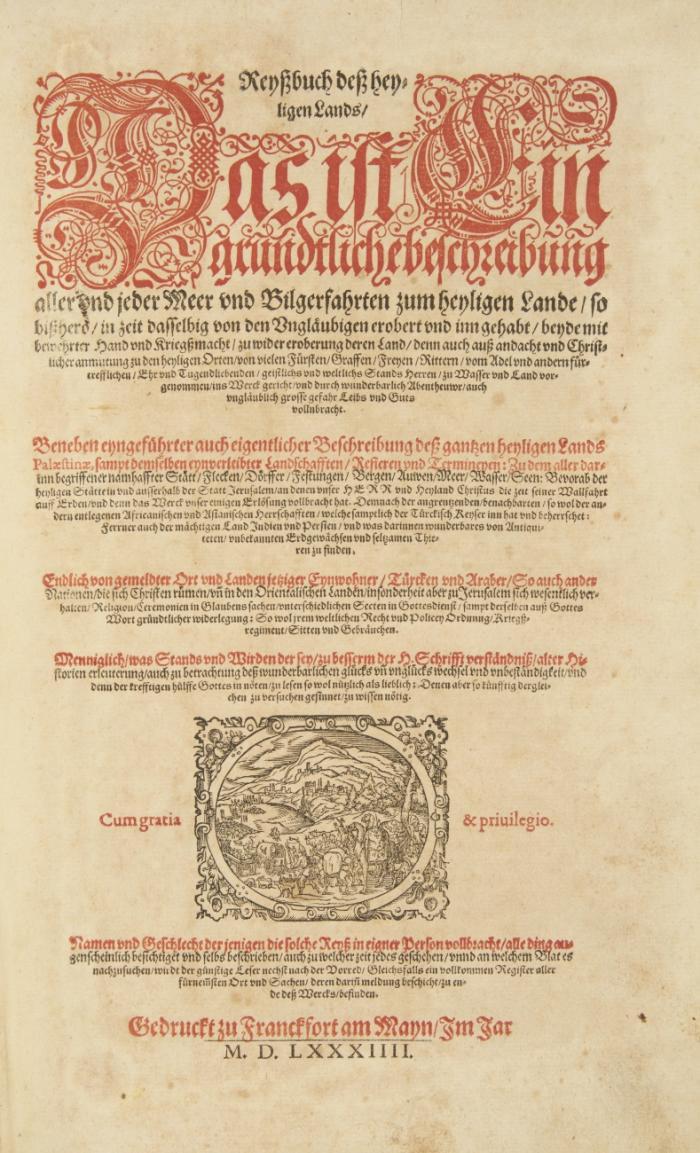 Reyßbuch deß hey-
ligen Lands/
Das ist Ein
gründtliche beschreibung
aller vnd jeder Meer vnd Bilgerfahrten zum heyligen Lande / so
bißhero / in zeit dasselbig von den Vngläubigen erobert vnd inn gehabt / beyde mit
bewehrter Hand vnd Kriegßmacht / zu wider eroberung deren Land / denn auch auß andacht vnd Christ-
licher anmutung zu den heyligen Orten / von vielen Fürsten / Graffen / Freyen / Rittern / vom Adel vnd andern für-
trefflichen / Ehr vnd Tugendliebenden / geistlichs vnd weltlichs Stands Herren / zu Wasser vnd Land vor-
genommen / ins Werck gericht / vnd durch wunderbarlich Abentheuwr / auch
vngläublich grosse gefahr Leibs vnd Guts
vollnbracht.
Beneben eyngeführter auch eigentlicher Beschreibung deß gantzen heyligen Lands
Palæstinæ, sampt demselben eynverleibter Landschafften / Refieren vnd Termineyen: Zu dem aller dar-
inn begriffener namhaffter Stätt / Flecken / Dörffer / Festungen / Bergen / Auwen / Meer / Wasser / Seen: Bevorab der
heyligen Stätte in vnd ausserhalb der Statt Jerusalem / an denen vnser HERR vnd Heyland Christus die zeit seiner Wallfahrt
auff Erden / vnd denn das Werck vnser einigen Erlösung vollbracht hat. Dennach der angrentzenden / benachbarten / so wol der an-
dern entlegenen Africanischen vnd Asianischen Herrschafften / welche samptlich der Türckisch Keyser inn hat vnd beherrschet:
Ferrner auch der mächtigen Land Indien vnd Persien / vnd was darinnen wunderbares von Antiqui-
teten / vnbekannten Erdgewächsen vnd seltzamen Thie-
ren zu finden.
Endlich von gemeldter Ort vnd Landen jetziger Eynwohner / Türcken vnd Araber / So auch ander
Nationen / die sich Christen rümen / vñ in den Orientalischen Landen / insonderheit aber zu Jerusalem sich wesentlich ver-
halten / Religion / Ceremonien in Glaubens sachen / vnterschiedlichen Secten in Gottesdienst / sampt derselben auß Gottes
Wort gründtlicher widerlegung: So wol jrem weltlichen Recht vnd Policey Ordnung / Kriegß-
regiment / Sitten vnd Gebräuchen.
Menniglich / was Stands vnd Wirden der sey / zu besserm der H. Schrifft verständniß / alter Hi-
storien erleuterung / auch zu betrachtung deß wunderbarlichen glücks vñ vnglücks wechsel vnd vnbeständigkeit / vnd
denn der krefftigen hülffe Gottes in nöten / zu lesen so wol nützlich als lieblich: Denen aber so künfftig derglei-
chen zu versuchen gesinnet / zu wissen nötig.
Cum gratia & priuilegio.
Namen vnd Geschlecht der jenigen die solche Reyß in eigner Person vollbracht / alle ding au-
genscheinlich besichtiget vnd selbs beschrieben / auch zu welcher zeit jedes geschehen / vnnd an welchem Blat es
nachzusuchen / wirdt der günstige Leser nechst nach der Vorred / Gleichsfalls ein vollkommen Register aller
fürnemsten Ort vnd Sachen / deren darin meldung beschicht / zu en-
de deß Wercks / befinden.
Gedruckt zu Franckfort am Mayn / Im Jar
M. D. LXXXIIII.